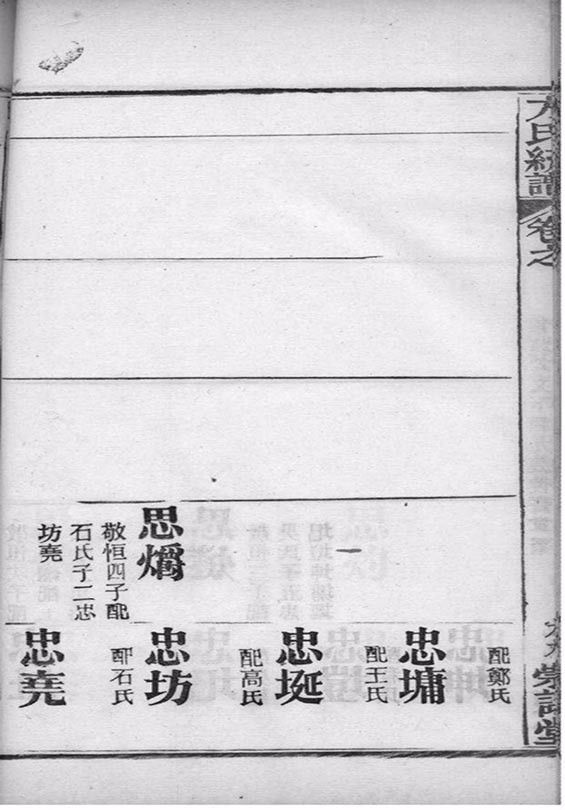 氏統譜
卷之
堂
思
敬恒四子配
石氏子二忠
坊堯
配鄭氏
忠墉
配王氏
忠埏
配高氏
忠坊
配石氏
忠堯